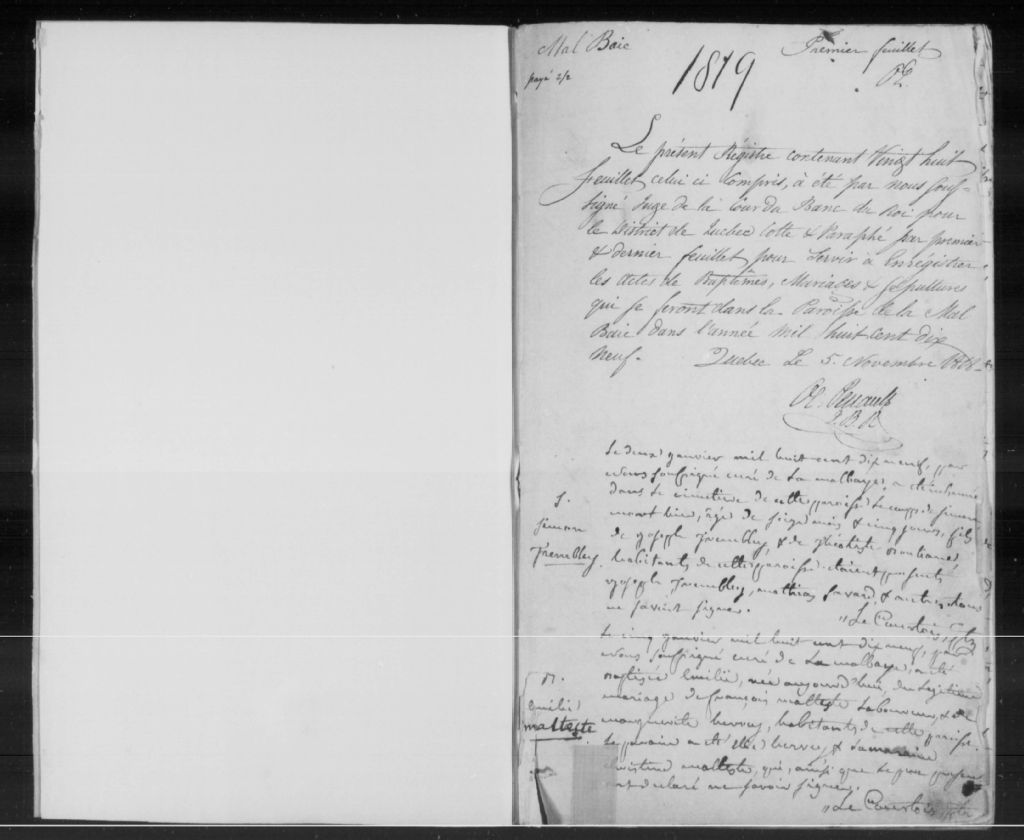 Mal Baie
Premier feuillet
payé 2/2
1819
Le présent Régistre contenant Vingt huit
feuillet celui ci Compris, à été par nous Souf-
signé Juge de la Cour du Banc du Roi pour
le District de Quebec Cotte & Paraphé par premier
& dernier feuillet pour Servir à Enrégistrer
les actes de Baptêmes, Mariages & Sepultures
qui se feront dans la Paroisse de la Mal
Baie dans l'année Mil huit Cent Dix
Neuf. Quebec Le 5. Novembre 1818
J.B.R
Le deux janvier mil huit cent dix neuf, par
nous soussigné curé de La malbaye, a été inhumé
dans le cimetiere de cette paroisse le corps de simon
mort hier, âgé de seize mois & cinq jours, fils
de joseph Trembley, & de
habitants de cette paroisse. étaient présents
joseph Trembley, mathias Savard, & autres
ne savoir signer.
Le Courtois, ptre
S.
simon
Trembley.
Le cinq janvier mil huit cent dix neuf, par
nous soussigné curé de La malbaye, a été
baptisée émilie, née aujourd'hui, du légitime
mariage de françois malteste laboureur, & de
marguerite hervey, habitants de cette paroisse.
Le parain a été hervey, & la maraine
malteste, qui, ainsi que le pere présent
ont déclaré ne savoir signer.
Le Courtois, ptre
B.
émilie
malteste